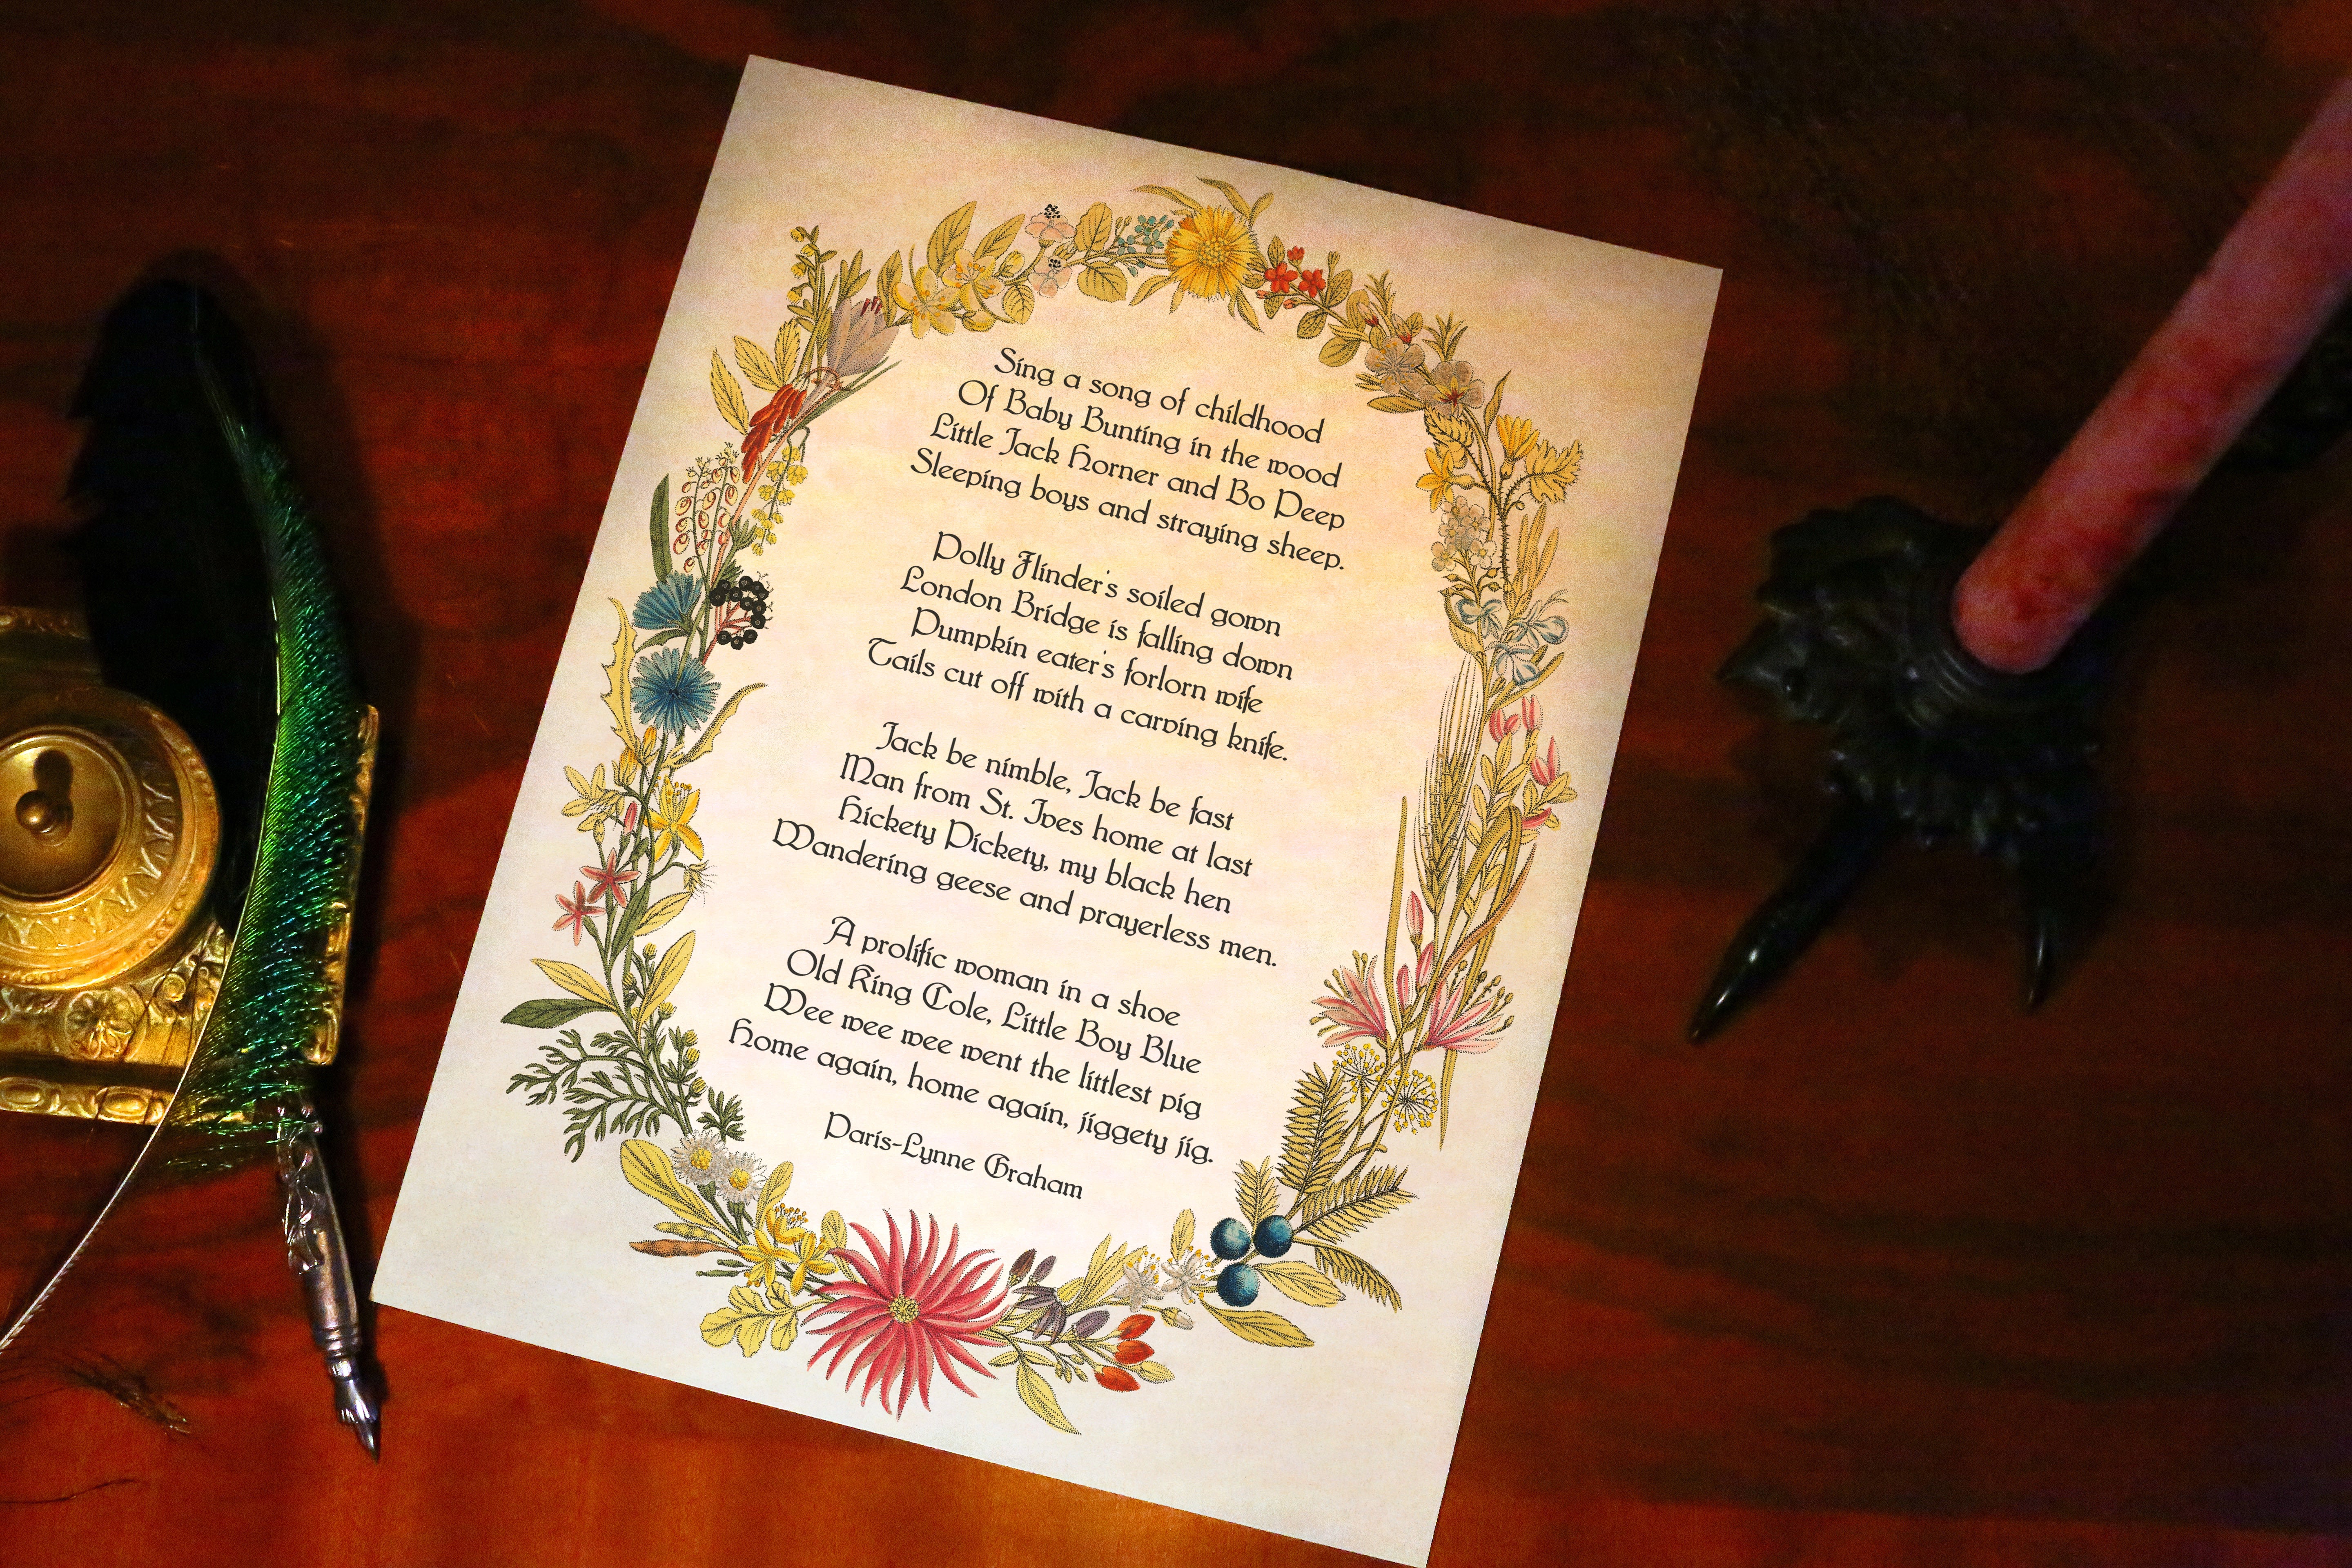 Sing a song of childhood
Of Baby Bunting in the wood
Little Jack Horner and Bo Peep
Sleeping boys and straying sheep.
Polly Flinder's soiled gown
London Bridge is falling down
Pumpkin eater's forlorn wife
Tails cut off with a carving knife.
Jack be nimble, Jack be fast
Man from St. Ives home at last
Hickety Pickety, my black hen
Wandering geese and prayerless men.
A prolific woman in a shoe
Old King Cole, Little Boy Blue
Wee wee wee went the littlest pig
Home again, home again, jiggety jig.
Paris-Lynne Graham